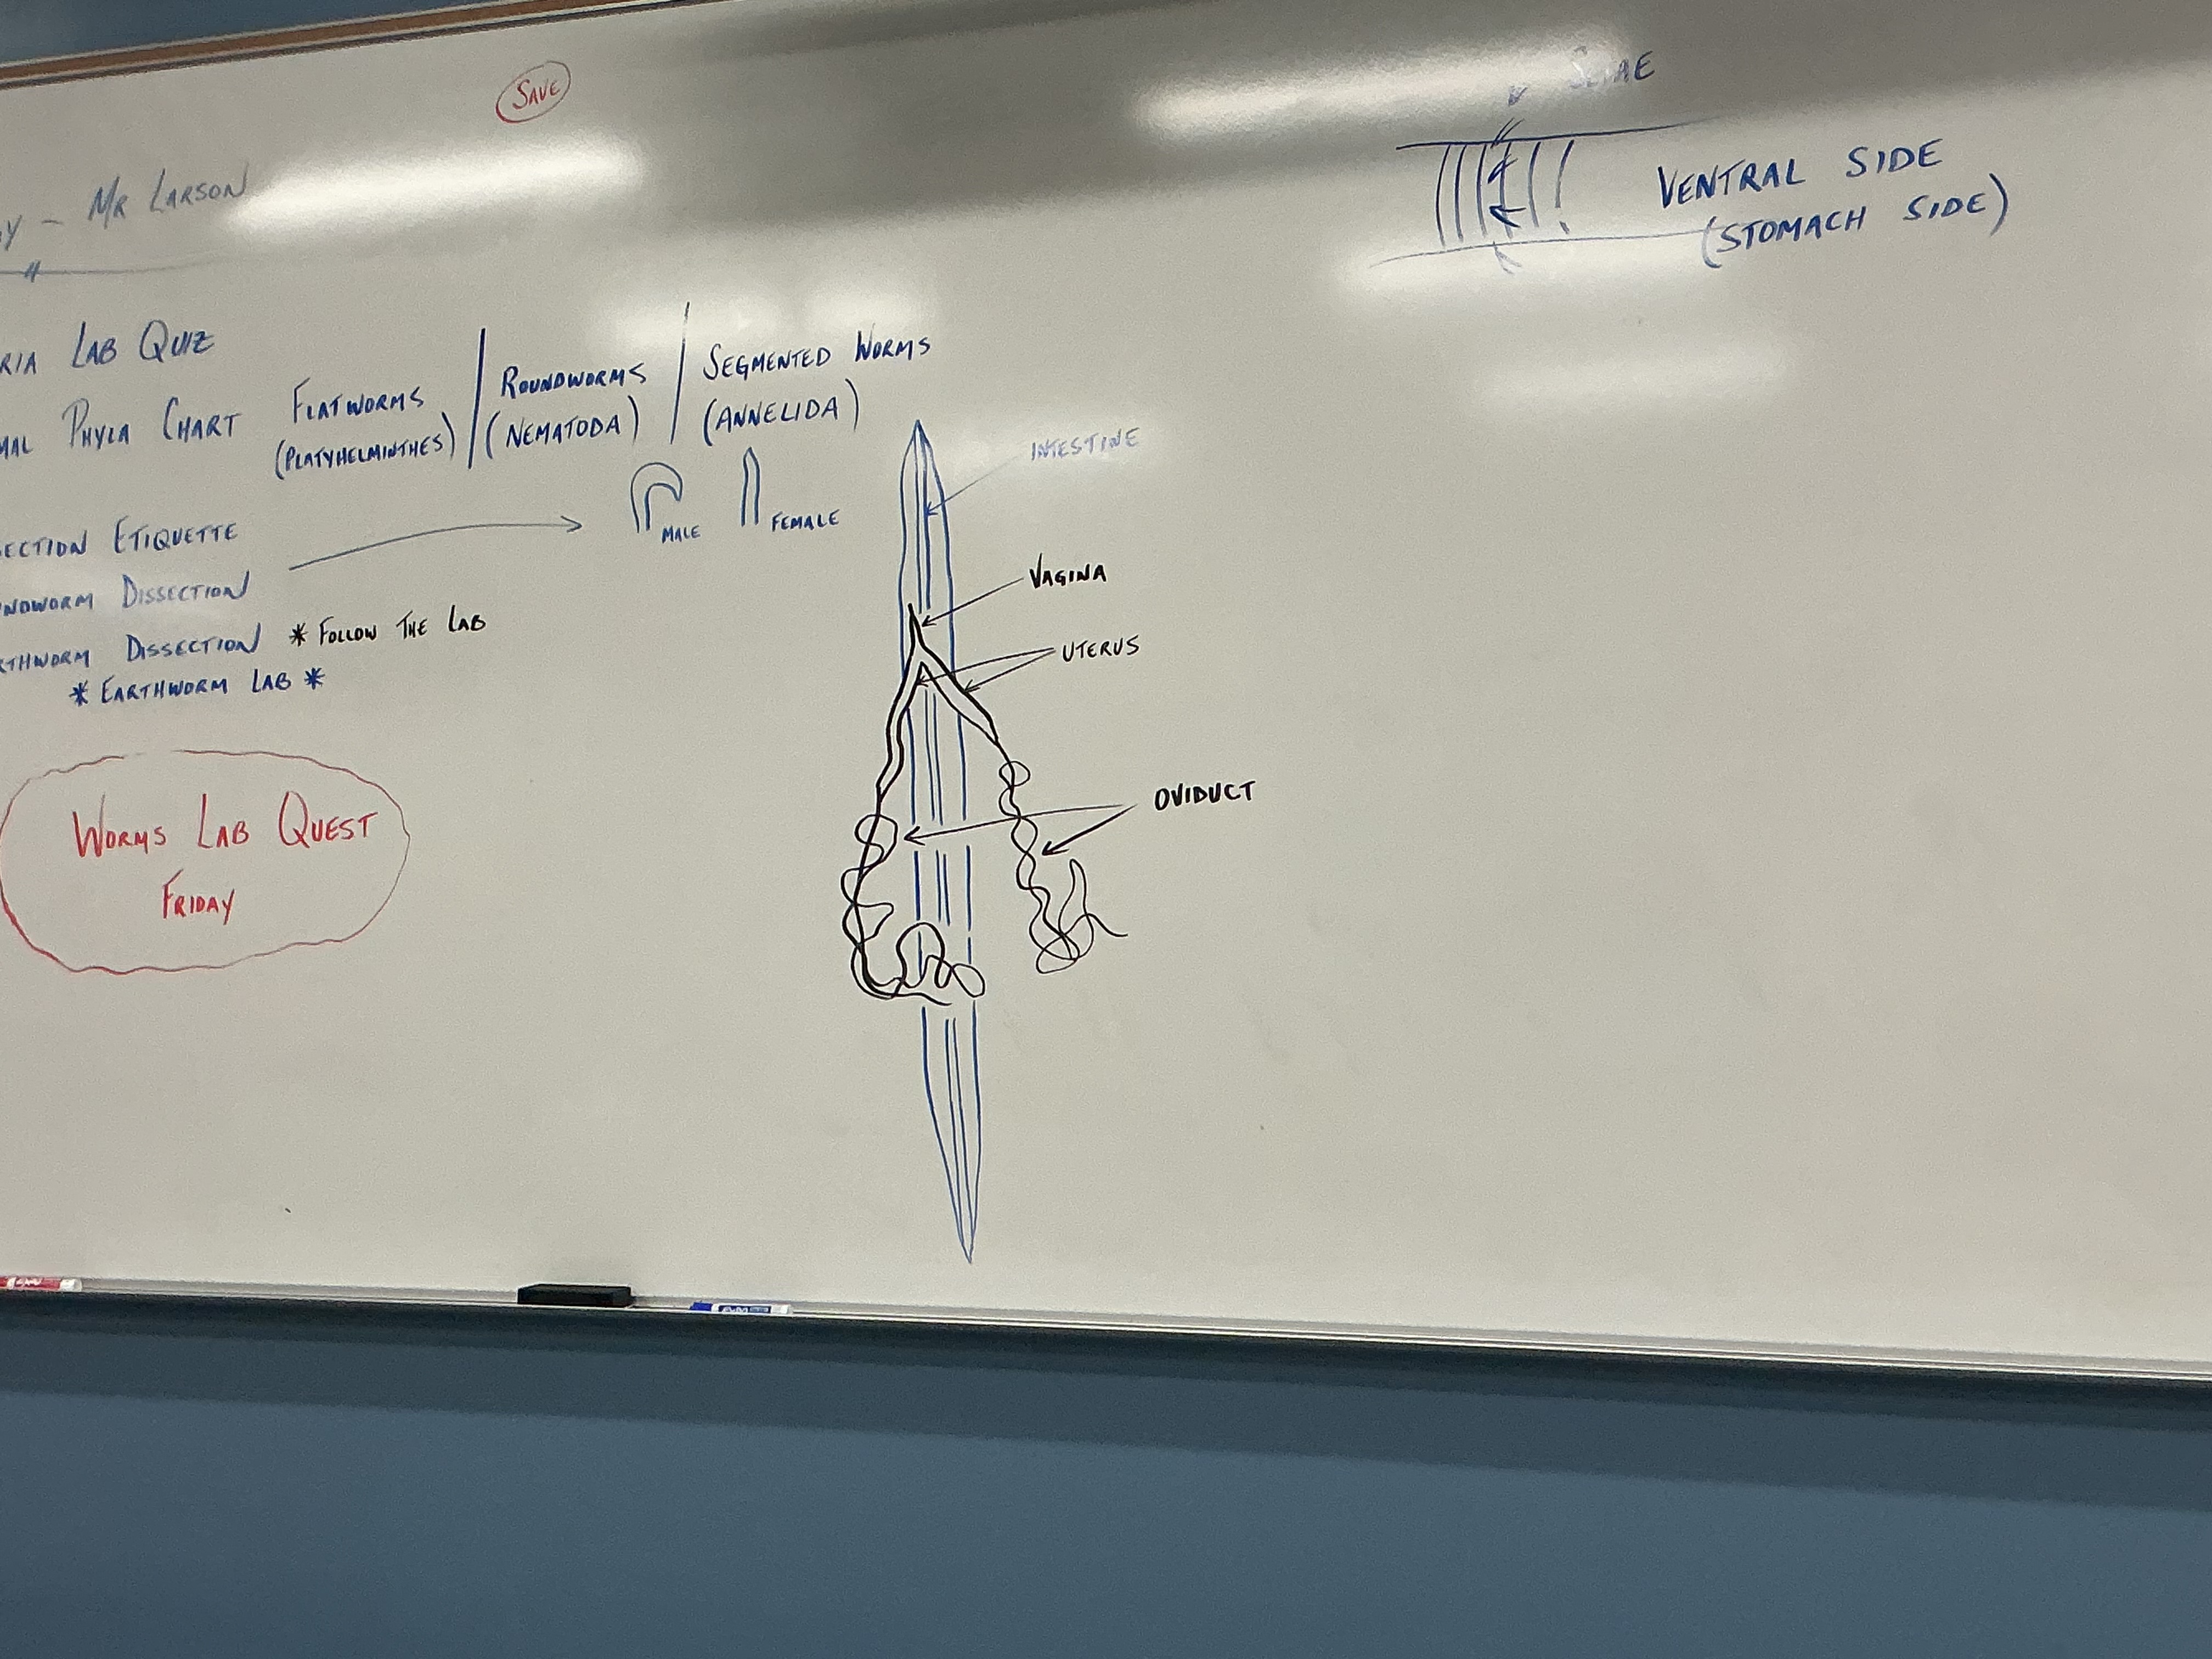 SAVE
Y - MR LARSON
"
RIA LAB QUIZ
MAL PHYLA CHART
FLATWORMS
(PLATYHELMINTHES)
ROUNDWORMS
(NEMATODA)
SEGMENTED WORMS
(ANNELIDA)
SECTION ETIQUETTE
MALE
FEMALE
NDWORM DISSECTION
RTHWORM DISSECTION * FOLLOW THE LAB
* EARTHWORM LAB *
WORMS LAB QUEST
FRIDAY
INTESTINE
VAGINA
UTERUS
OVIDUCT
SETAE
VENTRAL SIDE
(STOMACH SIDE)